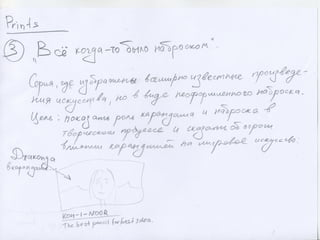 Prints
③ „Всё когда-то было наброском".
Серия, где изображены всемирно известные произведе-
ния искусства, но в виде неоформленного наброска.
Цель: показать роль карандаша и наброска в
творческом процессе и сказать об огром
влиянии карандашей на мировое искусство.
Джаконда
в карандаше
KOH-I-NOOR
The best pencil for best idea.